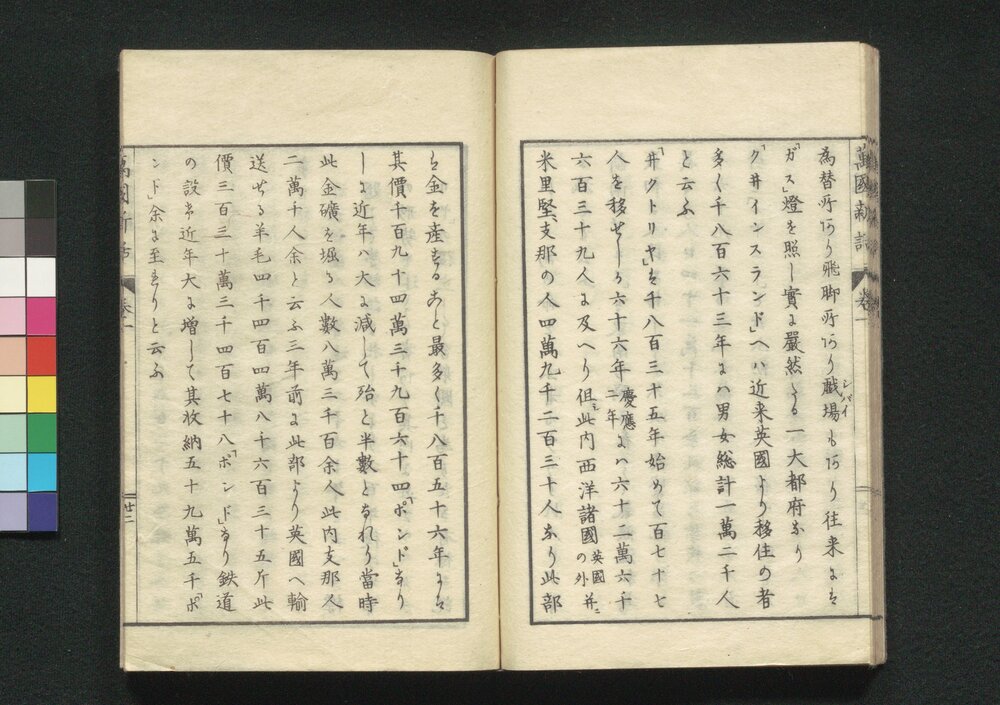 萬國新話 巻一
為替所阿り飛脚所阿り戯場シバイも阿り往来にハ
「ガス」燈を照し實に嚴然たる一大都府なり
「ク井インスランド」へハ近来英國より移住の者
多く千八百六十三年にハ男女総計一萬二千人
と云ふ
「井クトリヤ」ハ千八百三十五年始めて百七十七
人を移せしが六十六年慶應二年にハ六十二萬六千
六百三十九人に及へり但之此内西洋諸國英國の外并ニ
米里堅、支那の人四萬九千二百三十人なり此部
ハ金を産すること最多く千八百五十六年にハ
其價千百九十四萬三千九百六十四「ポンド」なり
しに近年ハ大に減して殆と半數となれり當時
此金礦を堀る人數八萬三千百余人此内支那人
二萬千人余と云ふ三年前に此部より英國へ輸
送せる羊毛四千四百四萬八千六百三十五斤此
價三百三十萬三千四百七十八「ポンド」なり鉄道
の設も近年大に増して其收納五十九萬五千「ポ
ンド」余に至れりと云ふ
萬國新話 巻一 廿二